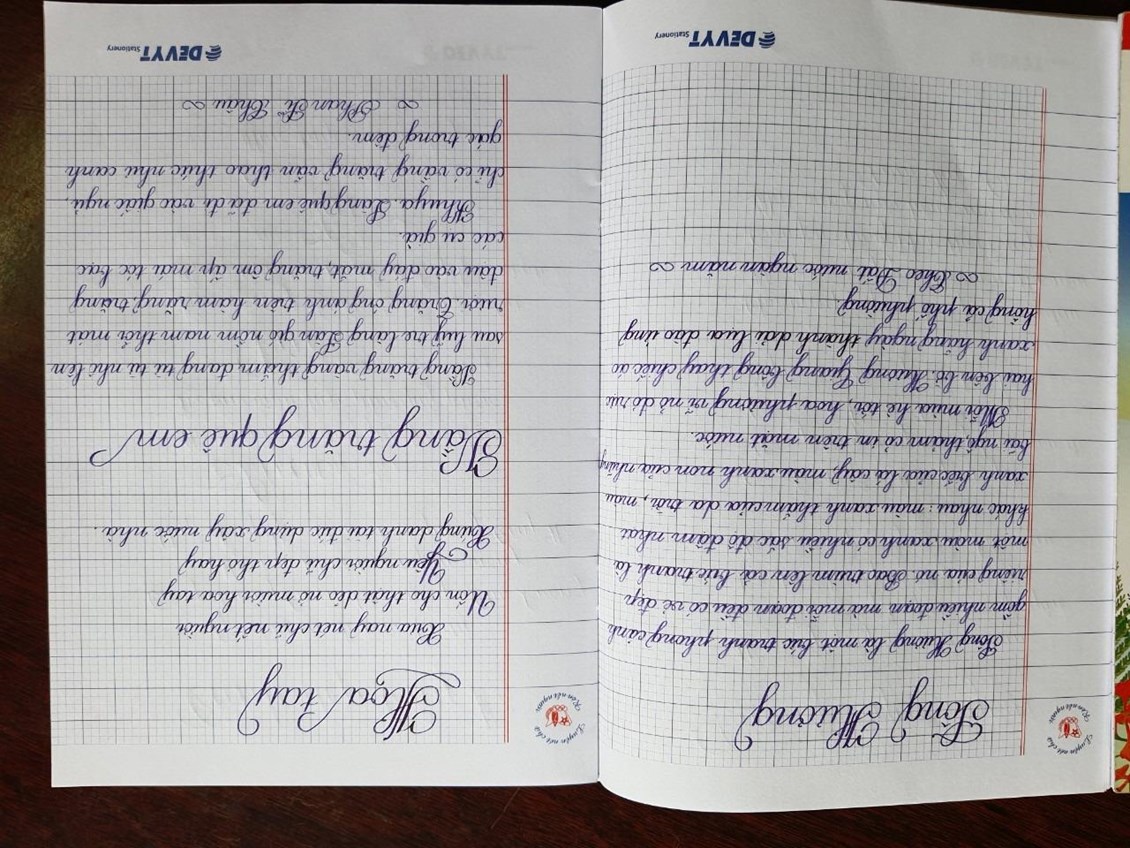 Luyện nét chữ
Rèn nết người
Sông Hương
Sông Hương là một bức tranh phong cảnh
gồm nhiều đoạn mà mỗi đoạn đều có vẻ đẹp
riêng của nó. Bao trùm lên cả bức tranh là
một màu xanh có nhiều sắc độ đậm nhạt
khác nhau: màu xanh thẳm của da trời, màu
xanh biếc của lá cây, màu xanh non của những
bãi ngô, thảm cỏ in trên mặt nước.
Mỗi mùa hè tới, hoa phượng vĩ nở đỏ rực
hai bên bờ. Hương Giang bỗng thay chiếc áo
xanh hằng ngày thành dải lụa đào ửng
hồng cả phố phường.
Theo Đất nước ngàn năm
DEVYT
Stationery
Luyện nét chữ
Rèn nết người
Hoa tay
Xưa nay nét chữ nết người
Uốn cho thật dẻo nở mười hoa tay
Yêu người chữ đẹp thơ hay
Hùng danh ta đúc dựng xây nước nhà.
Vầng trăng quê em
Vầng trăng vàng thắm đang từ từ nhô lên
sau luỹ tre làng. Làn gió nồm nam thổi mát
rượi. Trăng óng ánh trên hàm răng, trăng
đậu vào đáy mắt, trăng ôm ấp mái tóc bạc
các cụ già.
Khuya. Làng quê em đã đi vào giấc ngủ.
chỉ có vầng trăng vẫn thao thức như canh
gác trong đêm.
Phan Sĩ Châu
DEVYT
Stationery